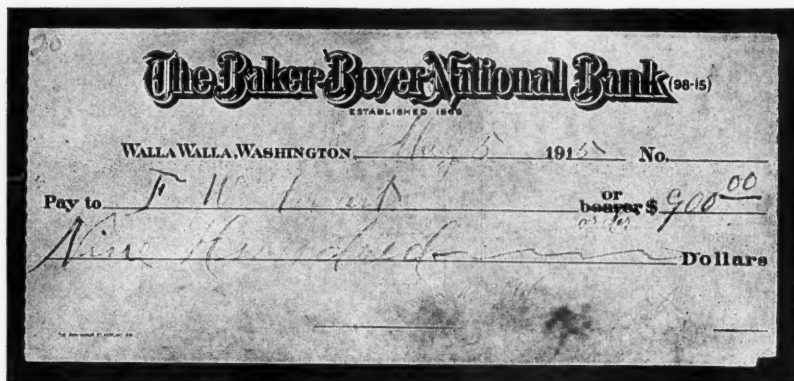 20
The Baker-Boyer National Bank (98-15)
ESTABLISHED 1869
WALLA WALLA, WASHINGTON, 5 1915 No.
Pay to F W or bearer $ 900 00
order
Nine Hundred Dollars